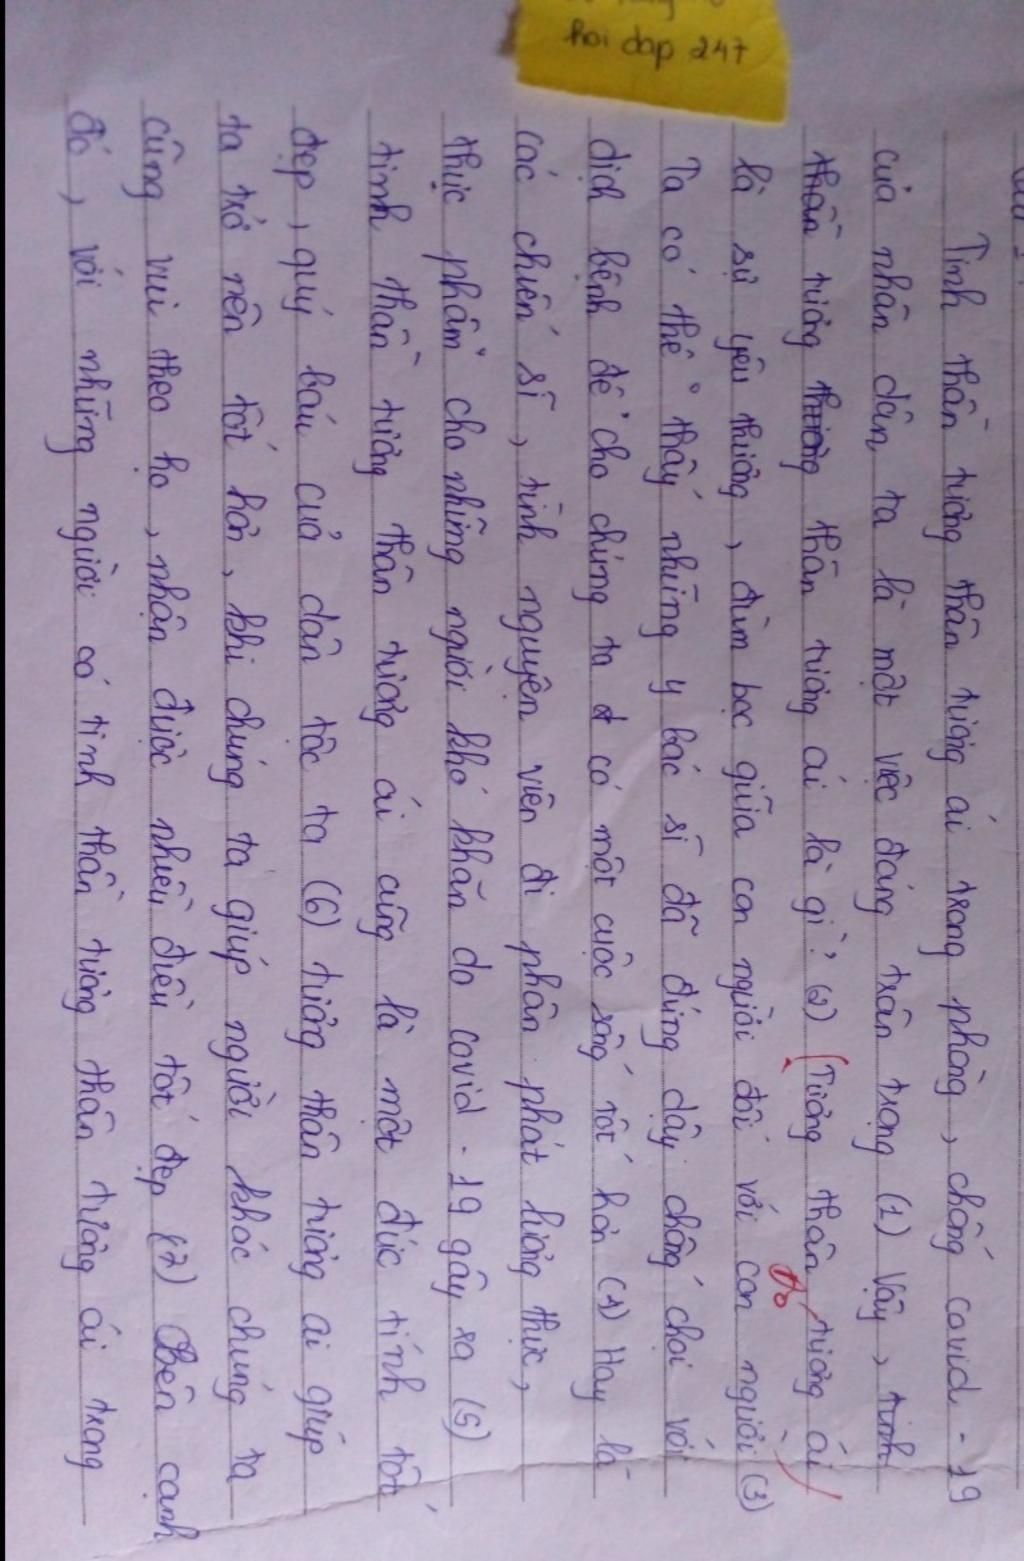 hoi dap 247
Tinh thần tương thân tương ái trong phòng, chống covid - 19
của nhân dân ta là một việc đáng trân trọng (1) Vậy, tinh
thần tương thương thân tương ái là gì? (2) (Tương thân tương ái
Đó
là sự yêu thương, đùm bọc giữa con người đối với con người (3)
Ta có thể thấy những y bác sĩ đã đứng dậy chống chọi với
dịch bệnh để cho chúng ta có một cuộc sống tốt hơn (4) Hay là
các chiến sĩ, tình nguyện viên đi phân phát lương thực,
thực phẩm cho những người khó khăn do covid - 19 gây ra (5)
tinh thần tương thân tương ái cũng là một đức tính tốt
đẹp, quý báu của dân tộc ta (6) tương thân tương ai giúp
ta trở nên tốt hơn, khi chúng ta giúp người khác chúng ta
cũng vui theo họ, nhận được nhiều điều tốt đẹp (7) Bên cạnh
đó, với những người có tinh thần tương thân tương ái trong